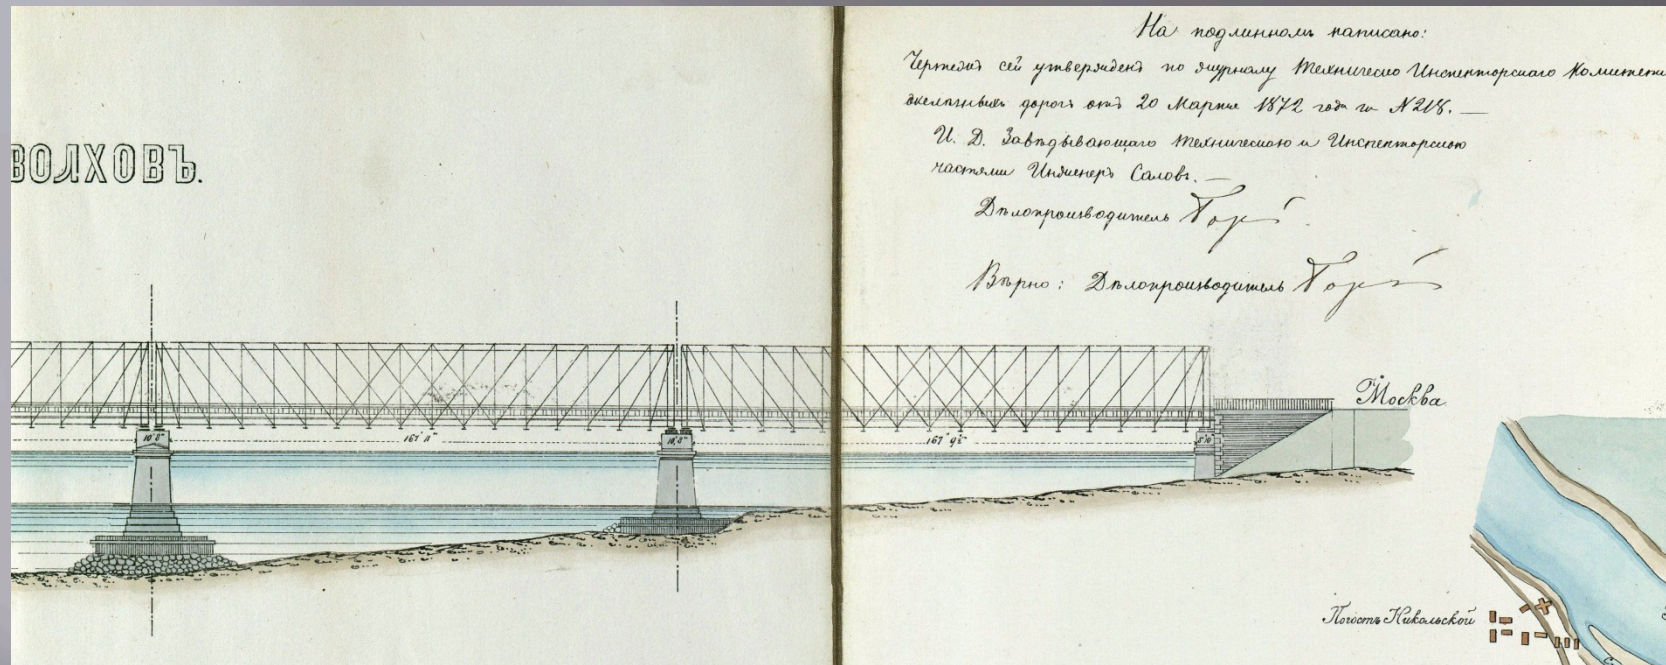 ВОЛХОВЪ.
На подлинномъ написано:
Чертежъ сей утвержденъ по журналу Техническо Инспекторскаго Комитета
желѣзныхъ дорогъ отъ 20 Марта 1872 года за №218. —
И. Д. Завѣдывающаго Техническою и Инспекторскою
частями Инженеръ Саловъ. —
Дѣлопроизводитель
Вѣрно: Дѣлопроизводитель
Москва
10' 8"
10' 8"
Погостъ Никольской